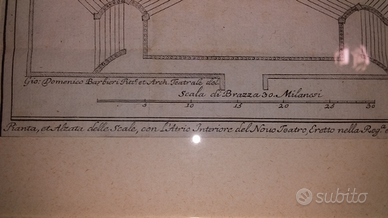 Gio: Domenico Barbieri Pit.e et Arch. Teatrale del.
Scala di Brazza 30. Milanesi
5 10 15 20 25 30
Pianta, et Alzata delle Scale, con l'Atrio Interiore del Nouo Teatro, Eretto nella
subito